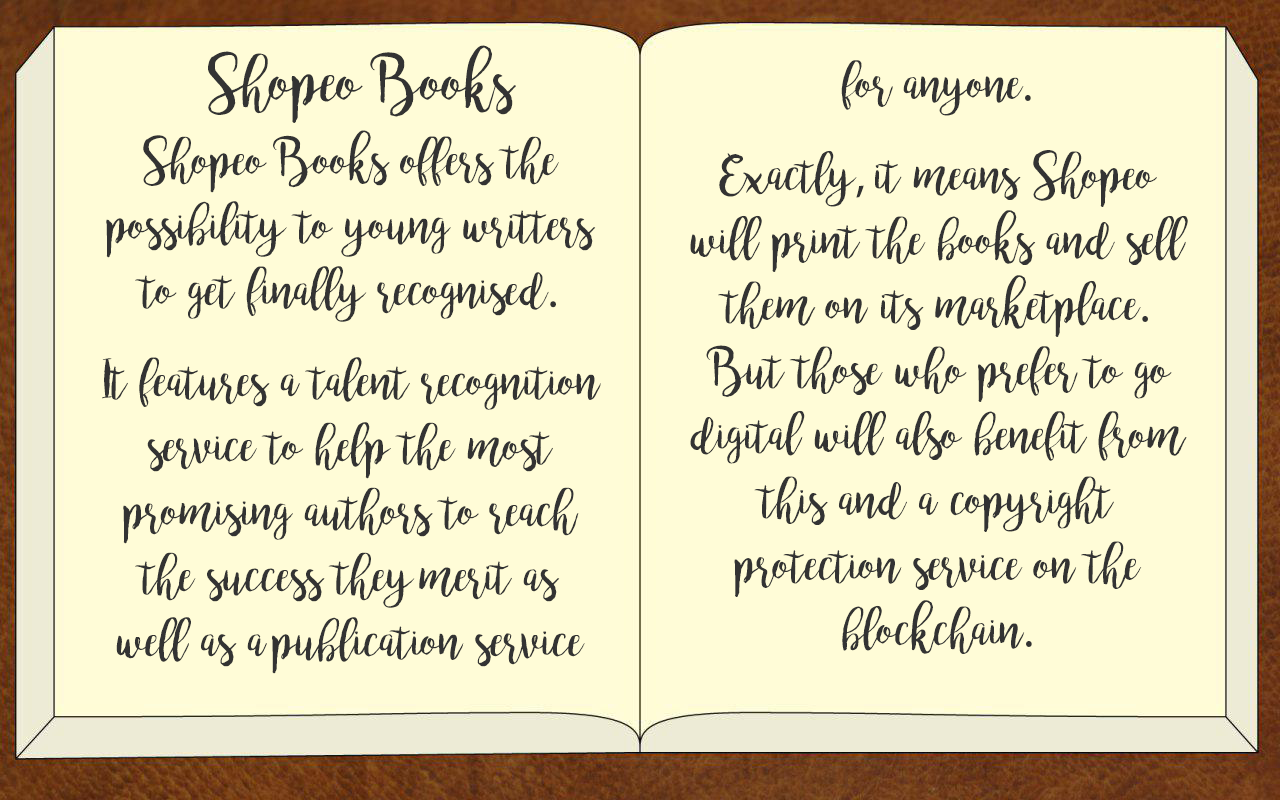 Shopeo Books
Shopeo Books offers the
possibility to young writters
to get finally recognised.
It features a talent recognition
service to help the most
promising authors to reach
the success they merit as
well as a publication service
for anyone.
Exactly, it means Shopeo
will print the books and sell
them on its marketplace.
But those who prefer to go
digital will also benefit from
this and a copyright
protection service on the
blockchain.